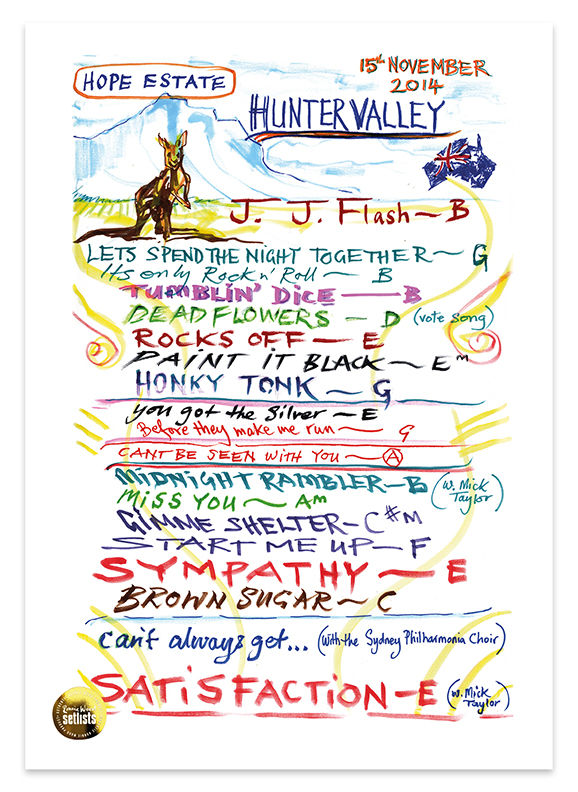 HOPE ESTATE
15th NOVEMBER
2014
HUNTER VALLEY
J. J. Flash ~ B
LETS SPEND THE NIGHT TOGETHER ~ G
Its only Rock n' Roll ~ B
TUMBLIN' DICE — B
DEAD FLOWERS - D (vote song)
ROCKS OFF - E
PAINT IT BLACK ~ Em
HONKY TONK ~ G
you got the Silver ~ E
Before they make me run ~ G
CANT BE SEEN WITH YOU ~ A
MIDNIGHT RAMBLER - B (w. Mick Taylor)
MISS YOU ~ Am
GIMME SHELTER - C#M
START ME UP - F
SYMPATHY ~ E
BROWN SUGAR ~ C
can't always get... (with the Sydney Philharmonia Choir)
SATISFACTION - E (w. Mick Taylor)
Ronnie Wood
setlists